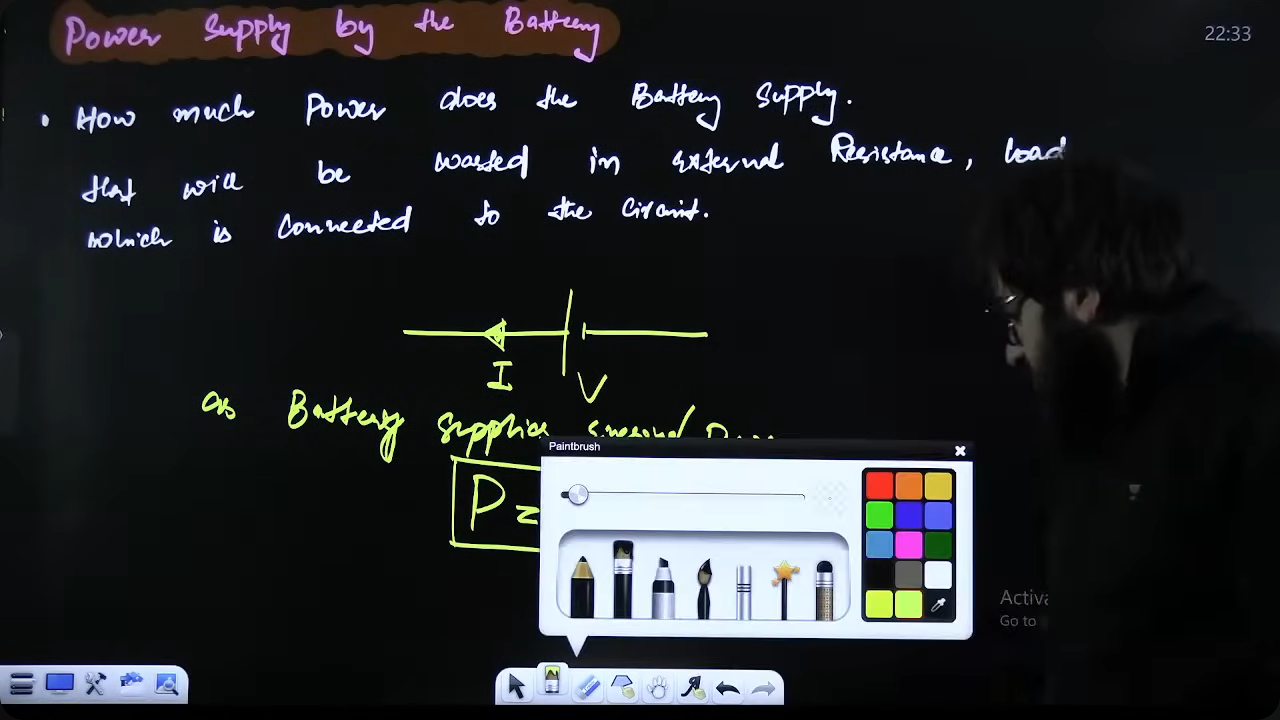 Power Supply by the Battery
22:33
• How much Power does the Battery Supply.
that will be wasted in external Resistance, load
which is connected to the Circuit.
I
V
as Battery supplies
Paintbrush
P =
Activa
Go to